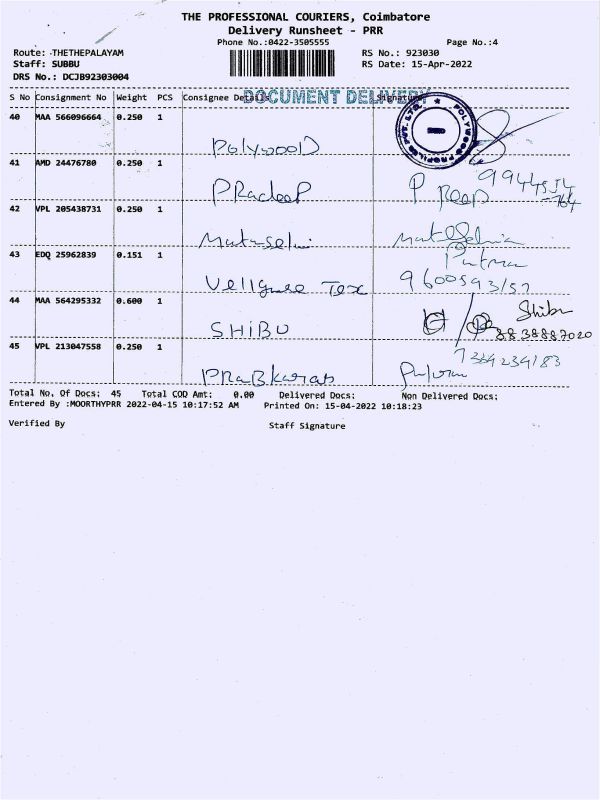 THE PROFESSIONAL COURIERS, Coimbatore
Delivery Runsheet - PRR
Phone No.:0422-3505555 Page No.:4
Route: -THETHEPALAYAM RS No.: 923030
Staff: SUBBU RS Date: 15-Apr-2022
DRS No.: DCJB92303004
S No Consignment No Weight PCS Consignee Details Signature
DOCUMENT DELIVERY
40 MAA 566096664 0.250 1
POLYWOOD
41 AMD 24476780 0.250 1
PRadeeP
42 VPL 205438731 0.250 1
43 EDQ 25962839 0.151 1
Tex
44 MAA 564295332 0.600 1
Shibu
SHIBU 8838887020
45 VPL 213047558 0.250 1
7384234183
Total No. Of Docs: 45 Total COD Amt: 0.00 Delivered Docs: Non Delivered Docs:
Entered By :MOORTHYPRR 2022-04-15 10:17:52 AM Printed On: 15-04-2022 10:18:23
Verified By Staff Signature